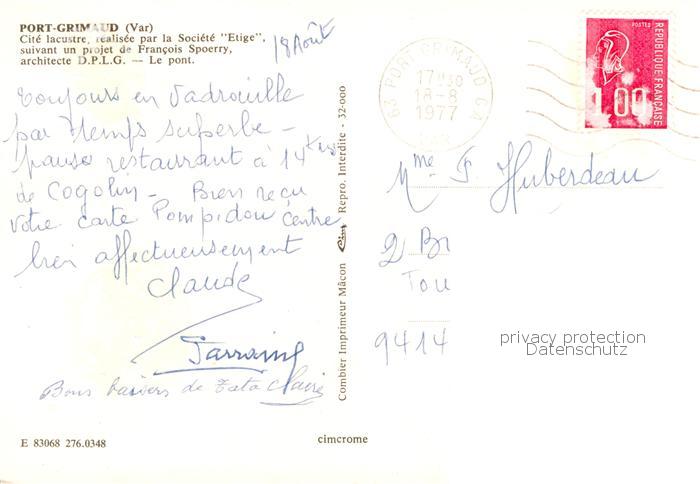 PORT-GRIMAUD (Var)
Cité lacustre, réalisée par la Société "Etige",
suivant un projet de François Spoerry,
architecte D.P.L.G. — Le pont.
18 Août
Toujours en vadrouille
par temps superbe -
pause restaurant à 14 Kms
de Cogolin - Bien reçu
votre carte Pompidou Centre
bien affectueusement
Claude
Parrain
Bons baisers de Tata Claire
E 83068 276.0348
cimcrome
Combier Imprimeur Mâcon Cim Repro. Interdite - 32-000
83 PORT GRIMAUD CA
17H30
18-8
1977
VAR
POSTES
REPUBLIQUE FRANÇAISE
1,00
Mme F. Huberdeau
2 Br
Tou
9414
privacy protection
Datenschutz